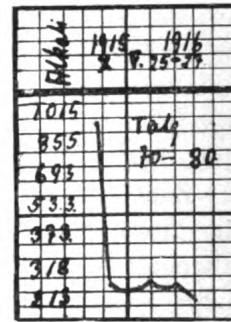 Alkali
1915 1916
X V. 25-27
1015
855
693
533
373
318
213
Talg
70-80